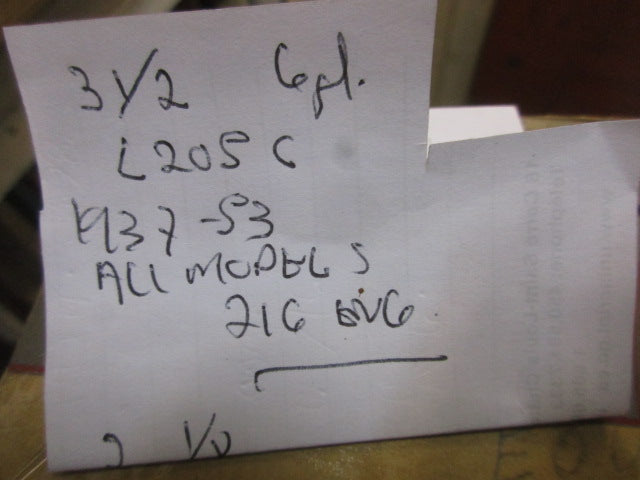 3 1/2 6 pl.
L205 C
1937-53
ALL MODELS
216 ENG